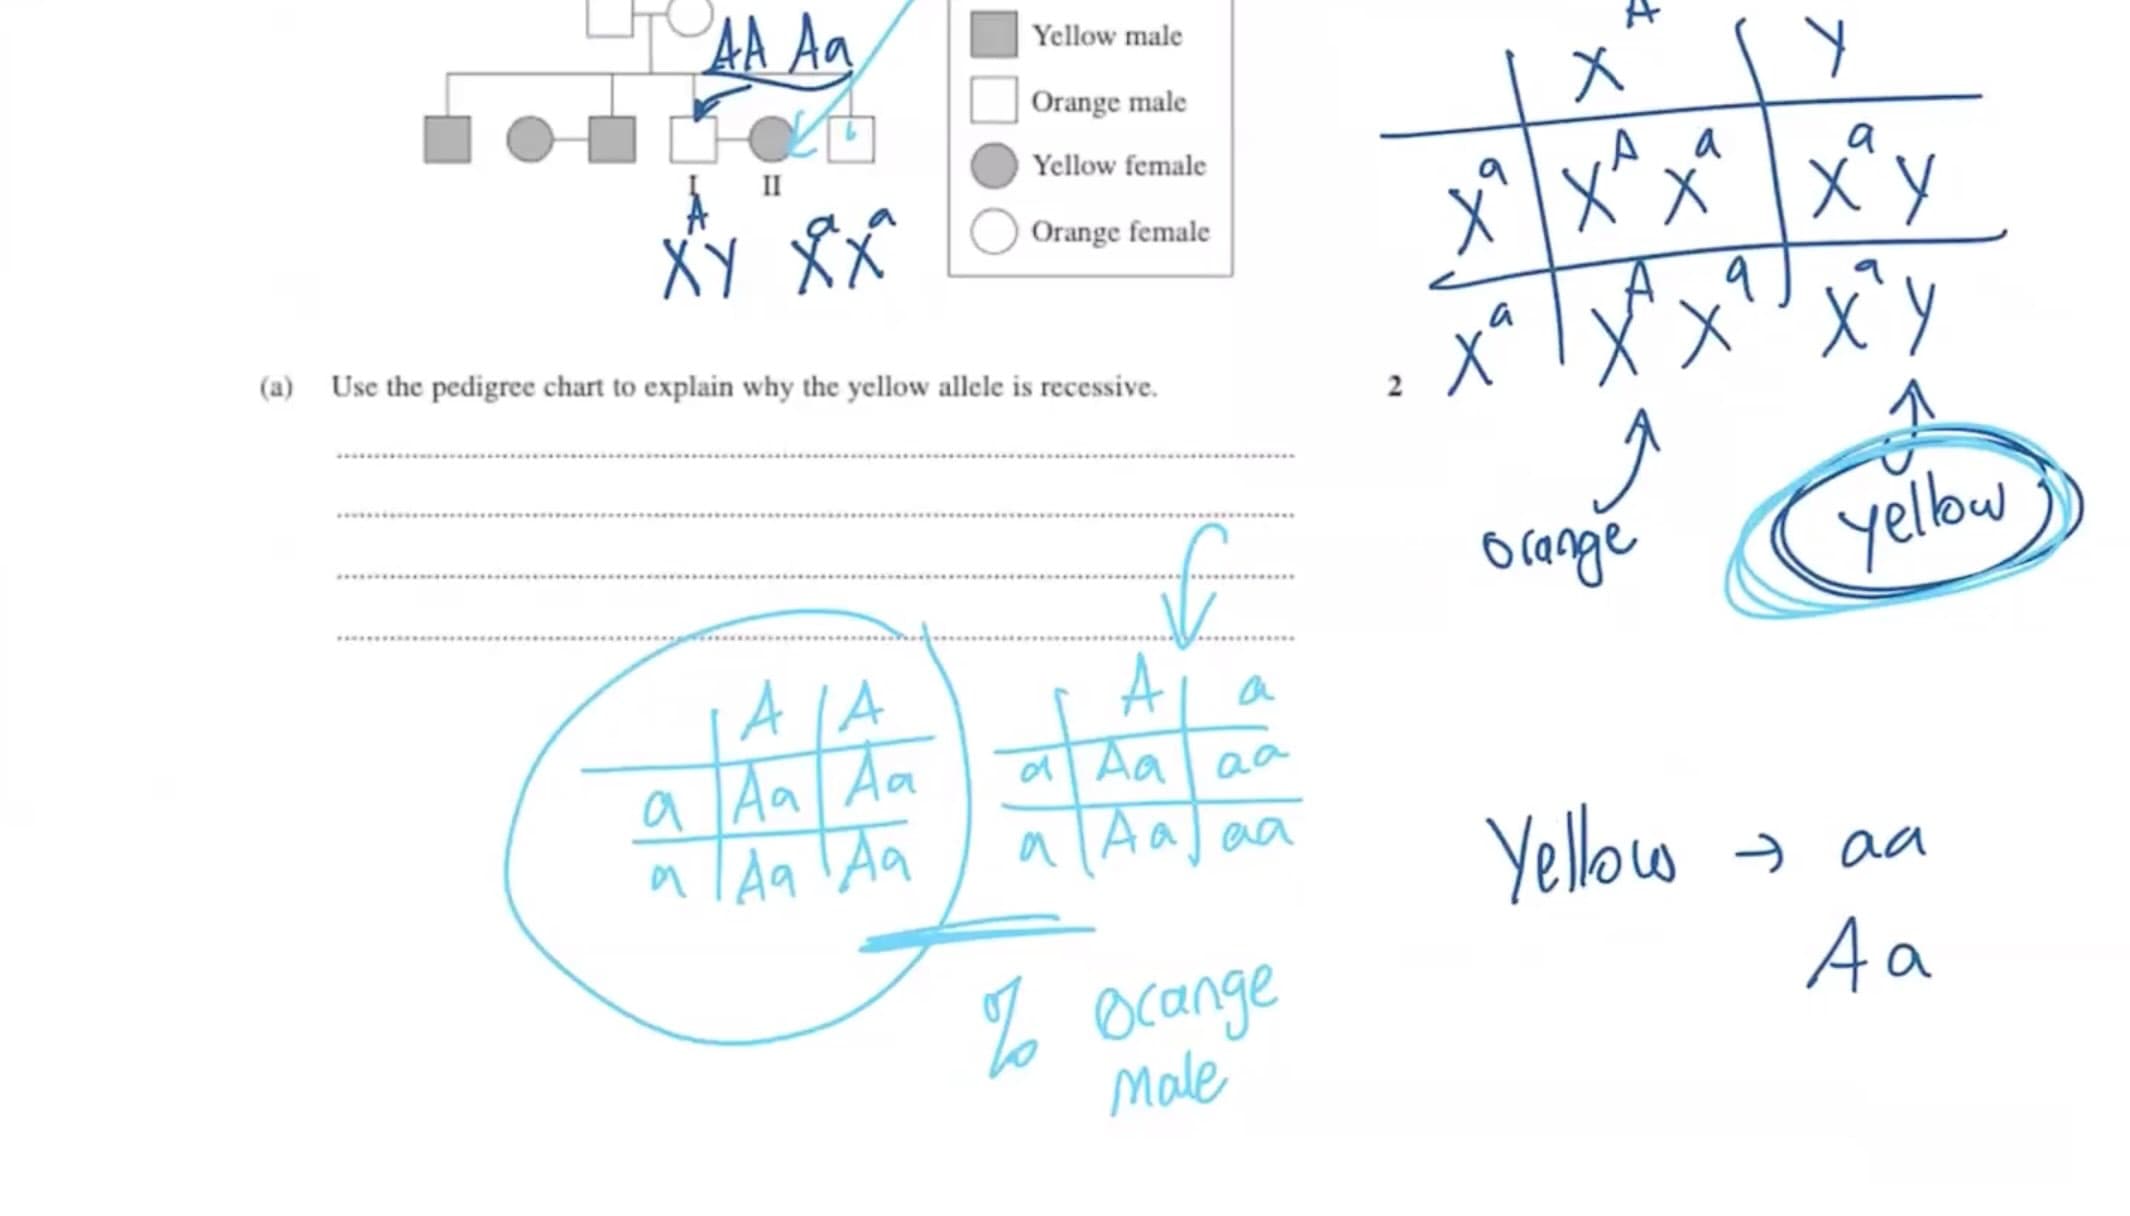 AA Aa
I II
A
XY XᵃXᵃ
Yellow male
Orange male
Yellow female
Orange female
(a) Use the pedigree chart to explain why the yellow allele is recessive. 2
Xᴬ Y
Xᵃ XᴬXᵃ XᵃY
Xᵃ XᴬXᵃ XᵃY
orange yellow
A A
a Aa Aa
a Aa Aa
A a
a Aa aa
a Aa aa
% orange
male
Yellow → aa
Aa